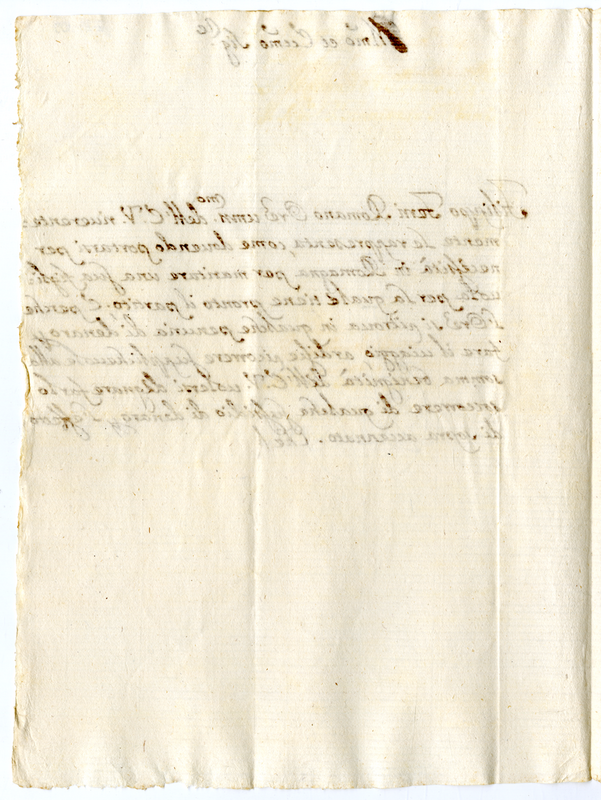 Ill.mo et Ecc.mo Sig.re
Filippo Romano Or.e um.mo dell'E.V. riverente
mente le rappresenta, come dovendo portarsi per
necessità in Romagna per maritare una sua figli
uola per la quale tiene pronto il partito. E perche
l'Or.e si ritrova in qualche penuria di denaro,
fare il viaggio ardisce ricorrere supplichevole alla
somma benignità dell'E.V. volersi degnare farlo
soccorrere di qualche sussidio di denaro
di sopra accennato. Che